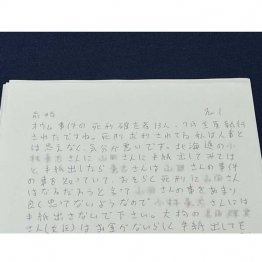 前略 No.1
オウム事件の死刑確定者13人、7月全員執行
されたですね。死刑求刑されてる私は人事と
は思えなく、気分が悪いです。北海道の小
さんに山田さんに手紙出してみては
と手紙出したら さんは山田さんの事
の事を知っていて、おそらく死刑に山田さん
はなるだろうと言って山田さんの事をあまり
良く思てないようなので さんには
手紙出さないで下さい。大拘の
さん(女区)はお金がないらしく手紙出しても